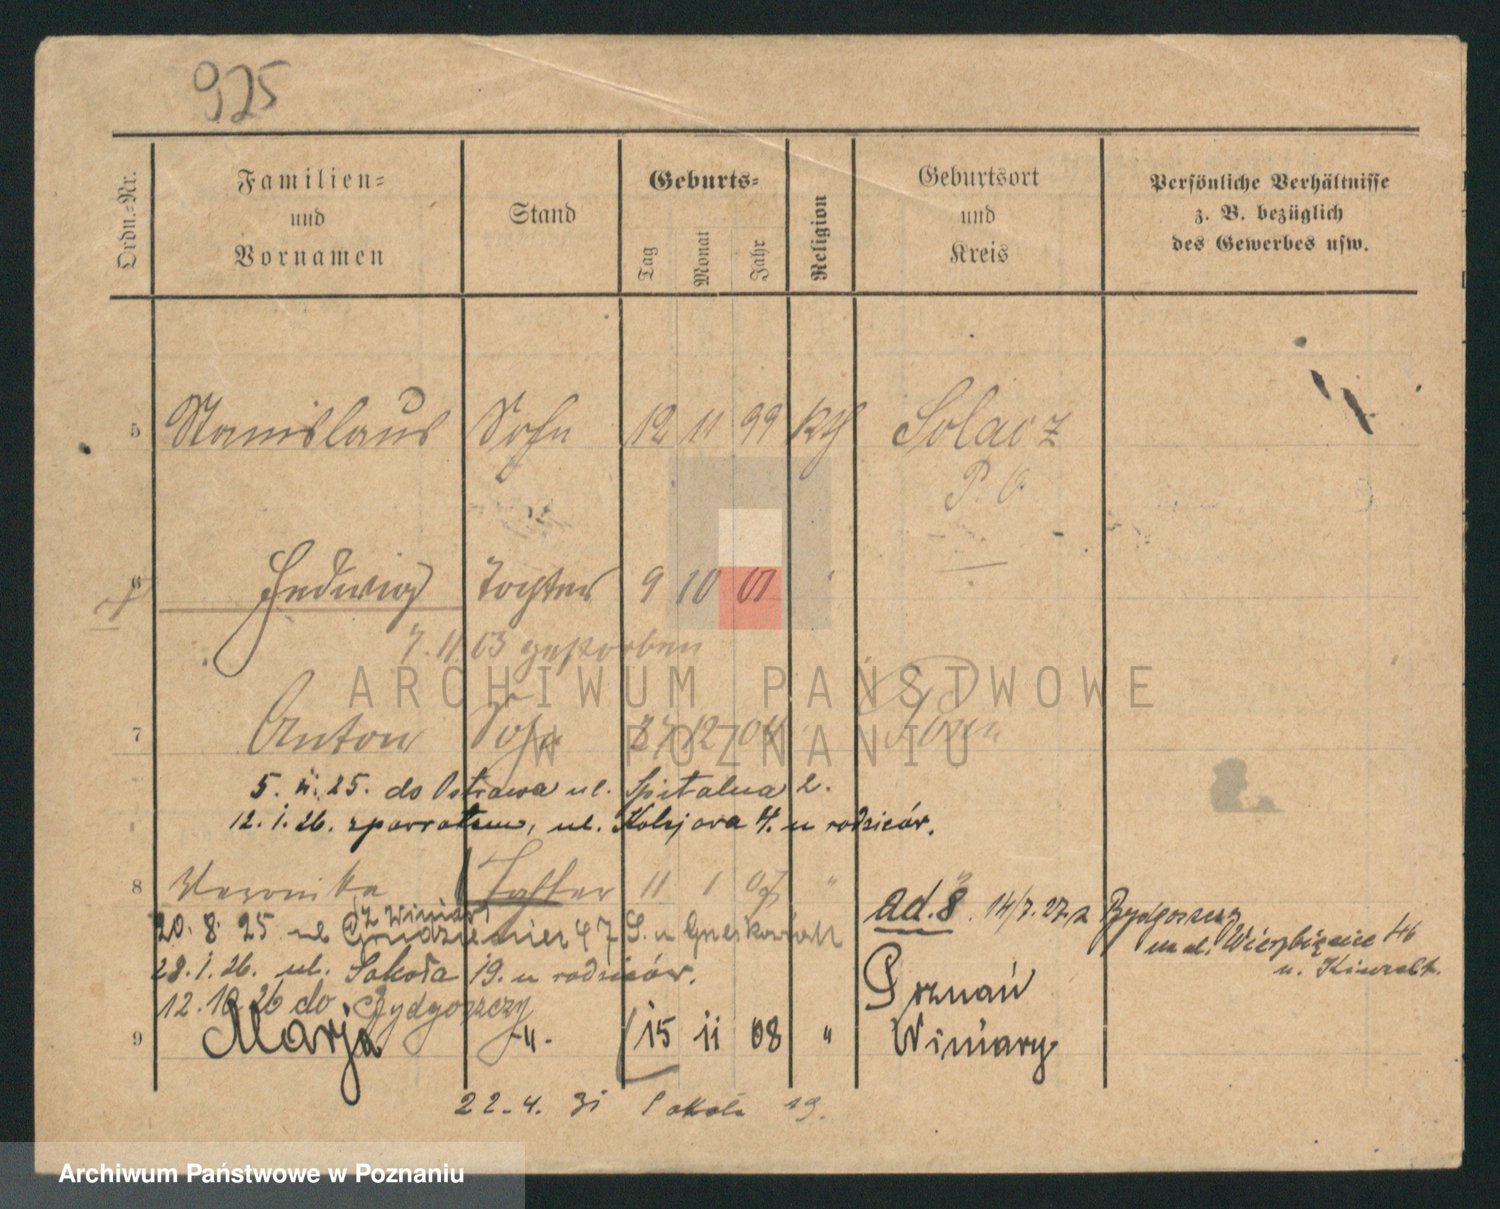 925
Ordn.-Nr.
Familien-
und
Vornamen
Stand
Geburts-
Tag
Monat
Jahr
Religion
Geburtsort
und
Kreis
Persönliche Verhältnisse
z. B. bezüglich
des Gewerbes usw.
5 Stanislaus Sohn 12 11 99 Kth Solacz
P. O.
6 Hedwig Tochter 9 10 01 "
7. 11 03 gestorben
7 Anton Sohn 27 12 04 Posen
5. II. 25. do Ostrowa ul. Spitalna 2.
12. I. 26. zpowrotem, ul. 4. u rodziców.
8 Veronika Tochter 11 1 07 "
ad. 8. 14/7. 27. z Bydgoszczy
z Winiar
20. 8. 25 ul Grudzieniec 47 S. u
na ul. Wierzbięcice 46
u.
28. I. 26. ul. Sokoła 19. u rodziców.
12. 10 26 do Bydgoszczy
9 Marja -"- 15 11 08 " Poznań
Winiary
22. 4. 31 Sokoła 19.
ARCHIWUM PAŃSTWOWE
W POZNANIU
Archiwum Państwowe w Poznaniu